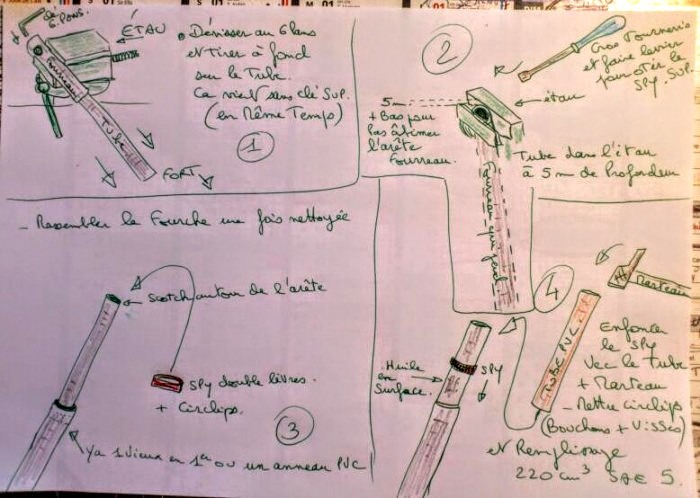 6 Pans.
ÉTAU
Fourreau
Tube
FORT
Dévisser au 6 Pans
et Tirer à fond
sur le Tube.
Ca vient sans clé SUP.
(en Même Temps)
1
2
Gros Tournevis
et faire levier
pour ôter le
SPY. SUP.
étau
5 m
+ Bas pour
Pas abimer
l'arête
Fourreau.
Tube dans l'étau
à 5 m de Profondeur
Fourreau qui pend
- Rassembler la Fourche une fois nettoyée
Scotch autour de l'arête
SPY double lèvres.
+ Circlips.
3
Ya 1 vieux en 1er ou un anneau PVC
4
Marteau
Tube PVC
Huile
en
Surface.
SPY
Enfoncer
le SPY
Vec le Tube
+ Marteau
- Mettre Circlips
(Bouchons + Visses)
et Remplissage
220 cm³ SAE 5.